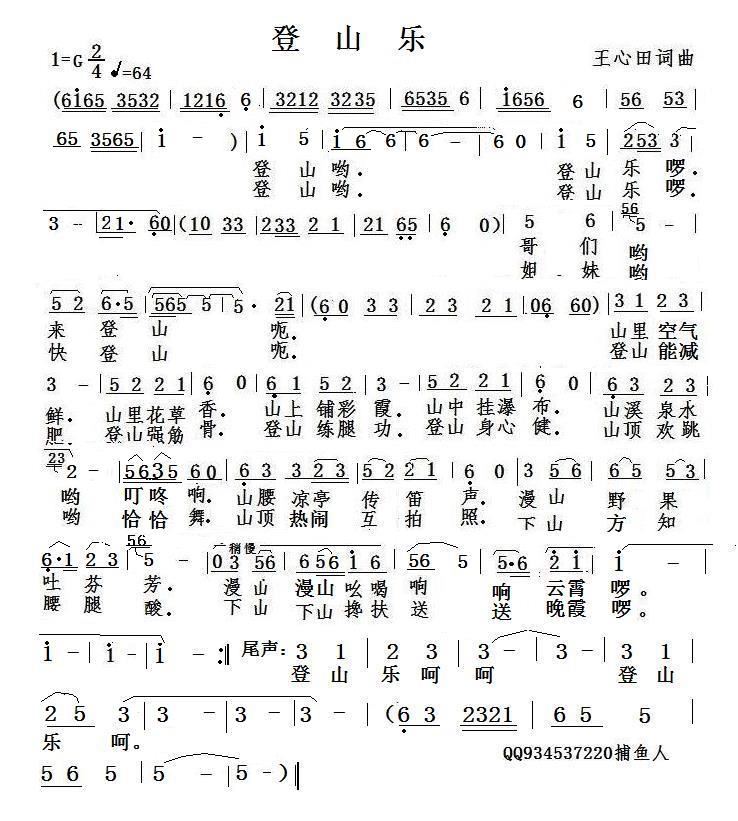 登 山 乐
1=G 2/4 ♩=64 王心田词曲
(6165 3532 | 1216 6 | 3212 3235 | 6535 6 | 1656 6 | 56 53 |
65 3565 | 1 - ) | 1 5 | 1 6 6 | 6 - | 6 0 | 1 5 | 253 3 |
登 山 哟. 登 山 乐 啰.
登 山 哟. 登 山 乐 啰.
3 - | 21· 60 | (10 33 | 233 21 | 21 65 | 6 0) | 5 6 | 56 5 - |
哥 们 哟
姐 妹 哟
52 6·5 | 565 5 5 | 5· 21 | (60 33 | 23 21 | 06 60) | 31 23 |
来 登 山 呃. 山里空气
快 登 山 呃. 登山能减
3 - | 52 21 | 6 0 | 61 52 | 3 - | 52 21 | 6 0 | 63 23 |
鲜. 山里花草 香. 山上铺彩 霞. 山中挂瀑 布. 山溪泉水
肥. 登山强筋 骨. 登山练腿 功. 登山身心 健. 山顶欢跳
23 2 - | 5635 60 | 63 323 | 52 21 | 6 0 | 3 56 | 5 6 |
哟 叮咚 响. 山腰凉亭 传笛 声. 漫山 野果
哟 恰恰 舞. 山顶热闹 互拍 照. 下山 方知
6·1 23 | 56 5 - | 稍慢 03 56 | 656 16 | 56 5 | 5·6 21 | 1 - |
吐 芬 芳. 漫山 漫山吆喝 响 响 云霄 啰。
腰 腿 酸. 下山 下山搀扶 送 送 晚霞 啰。
1 - | 1 - | 1 - :| 尾声: 3 1 | 2 3 | 3 - | 3 1 |
登 山 乐 呵 呵 登 山
2 5 3 | 3 - | 3 - | 3 - | (6 3 2321 | 65 5 |
乐 呵。
QQ934537220捕鱼人
56 5 | 5 - | 5 - | 5 - ) |